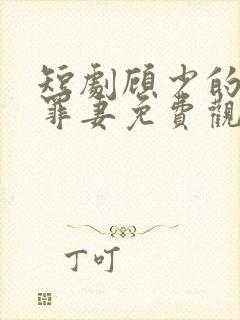 短劇顾少的
罪妻免費觀
丁叮